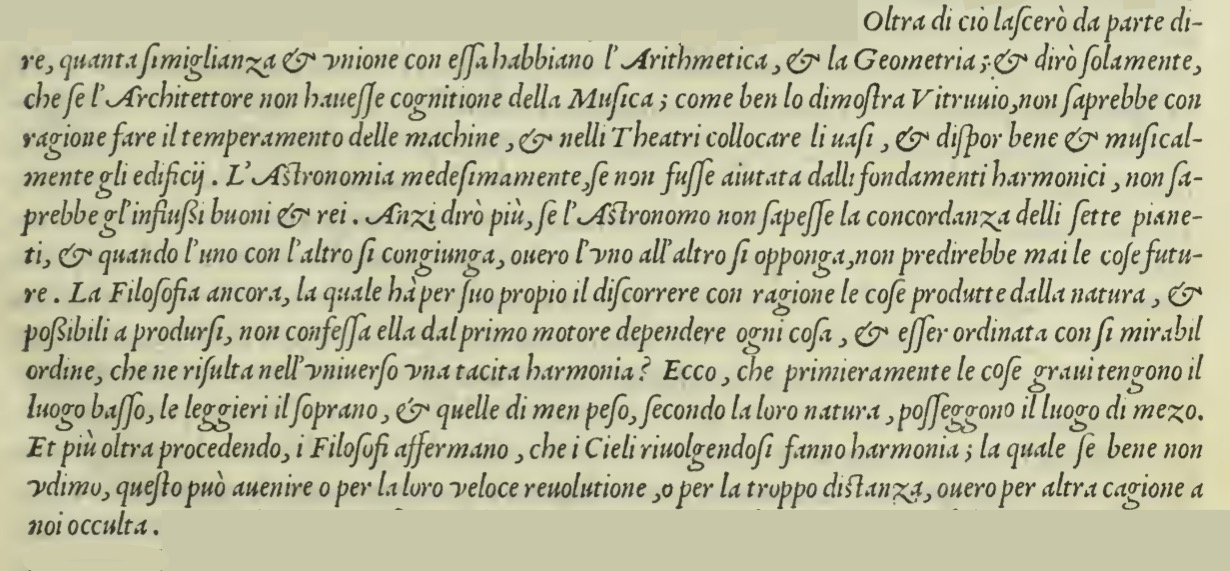 Oltra di ciò laſcerò da parte di-
re, quanta ſimiglianza & vnione con eſſa habbiano l' Arithmetica, & la Geometria; & dirò ſolamente,
che ſe l'Architettore non haueſſe cognitione della Muſica; come ben lo dimoſtra Vitruuio, non ſaprebbe con
ragione fare il temperamento delle machine, & nelli Theatri collocare li uaſi, & diſpor bene & muſical-
mente gli edificij. L'Aſtronomia medeſimamente, ſe non fuſſe aiutata dalli fondamenti harmonici, non ſa-
prebbe gl'influßi buoni & rei. Anzi dirò più, ſe l'Aſtronomo non ſapeſſe la concordanza delli ſette piane-
ti, & quando l'uno con l'altro ſi congiunga, ouero l'vno all'altro ſi opponga, non predirebbe mai le coſe futu-
re. La Filoſofia ancora, la quale hà per ſuo propio il diſcorrere con ragione le coſe produtte dalla natura, &
poßibili a produrſi, non confeſſa ella dal primo motore dependere ogni coſa, & eſſer ordinata con ſi mirabil
ordine, che ne riſulta nell'vniuerſo vna tacita harmonia? Ecco, che primieramente le coſe graui tengono il
luogo baſſo, le leggieri il ſoprano, & quelle di men peſo, ſecondo la loro natura, poſſeggono il luogo di mezo.
Et più oltra procedendo, i Filoſofi affermano, che i Cieli riuolgendoſi fanno harmonia; la quale ſe bene non
vdimo, queſto può auenire o per la loro veloce reuolutione, o per la troppo diſtanza, ouero per altra cagione a
noi occulta.